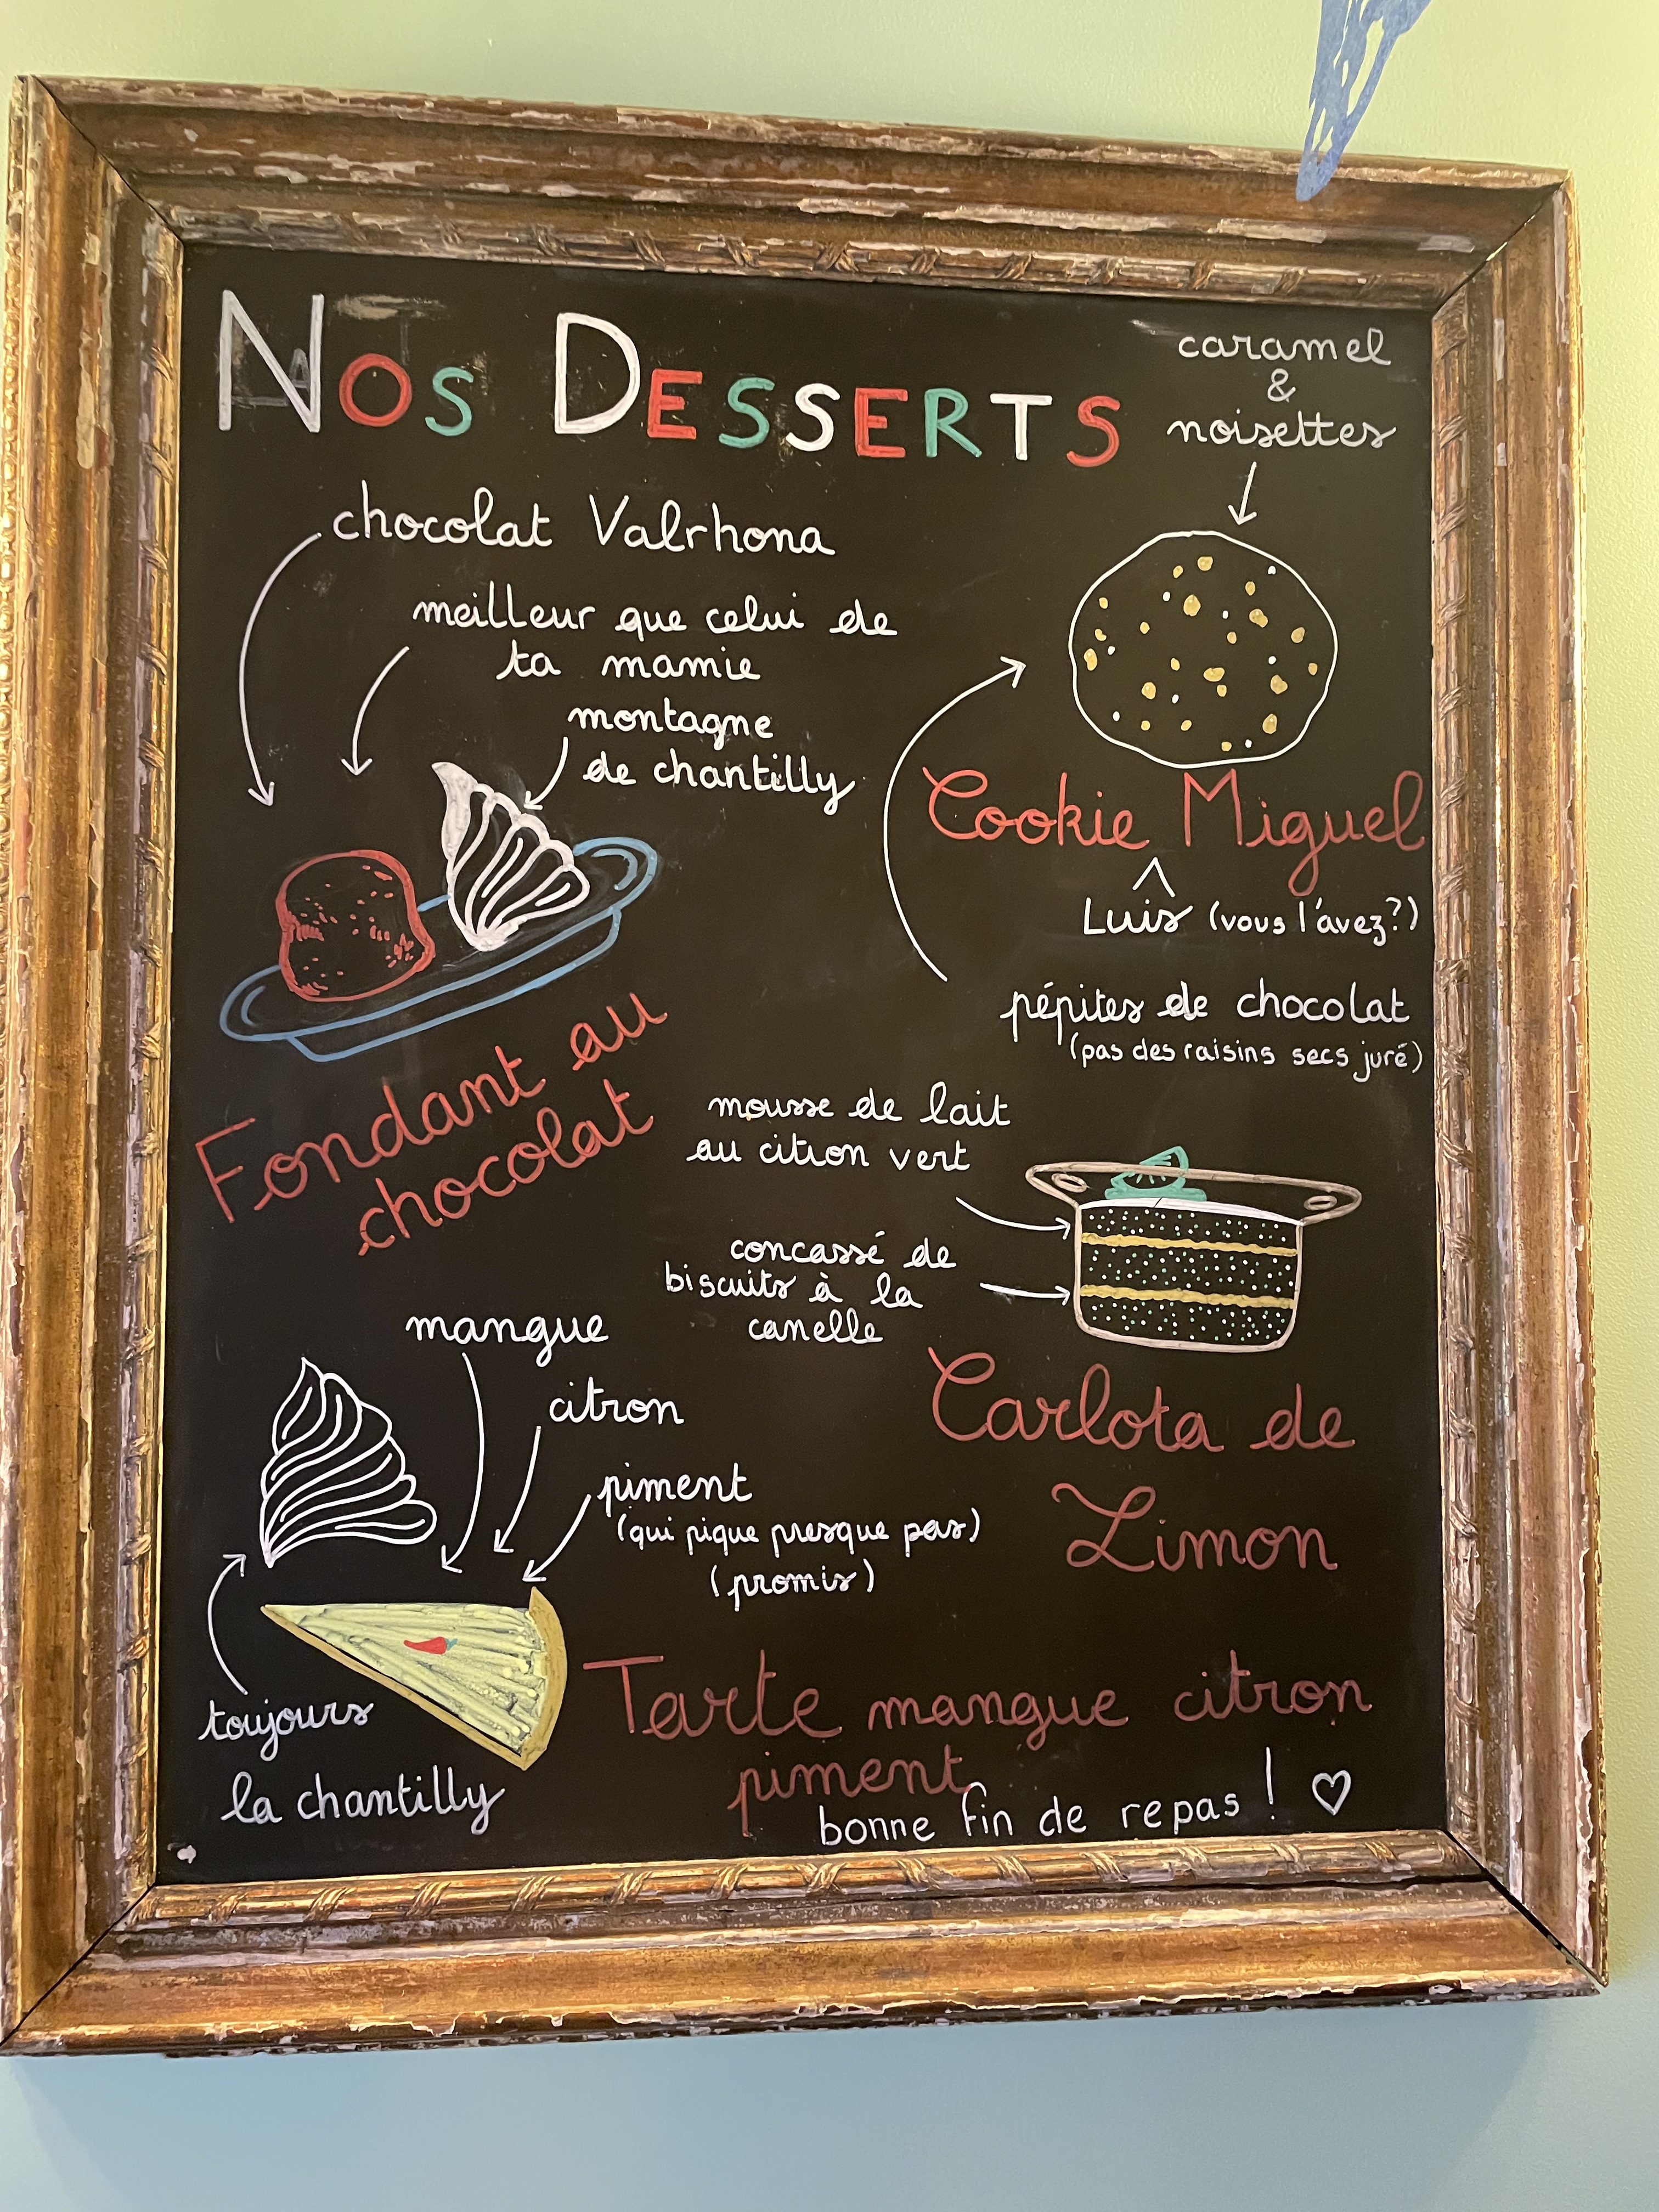 NOS DESSERTS
caramel
&
noisettes
chocolat Valrhona
meilleur que celui de
ta mamie
montagne
de chantilly
Fondant au
chocolat
Cookie Miguel
^
Luis (vous l'avez?)
pépites de chocolat
(pas des raisins secs juré)
mousse de lait
au citron vert
concassé de
biscuits à la
canelle
Carlota de
Limon
mangue
citron
piment
(qui pique presque pas)
(promis)
toujours
la chantilly
Tarte mangue citron
piment
bonne fin de repas ! ♡